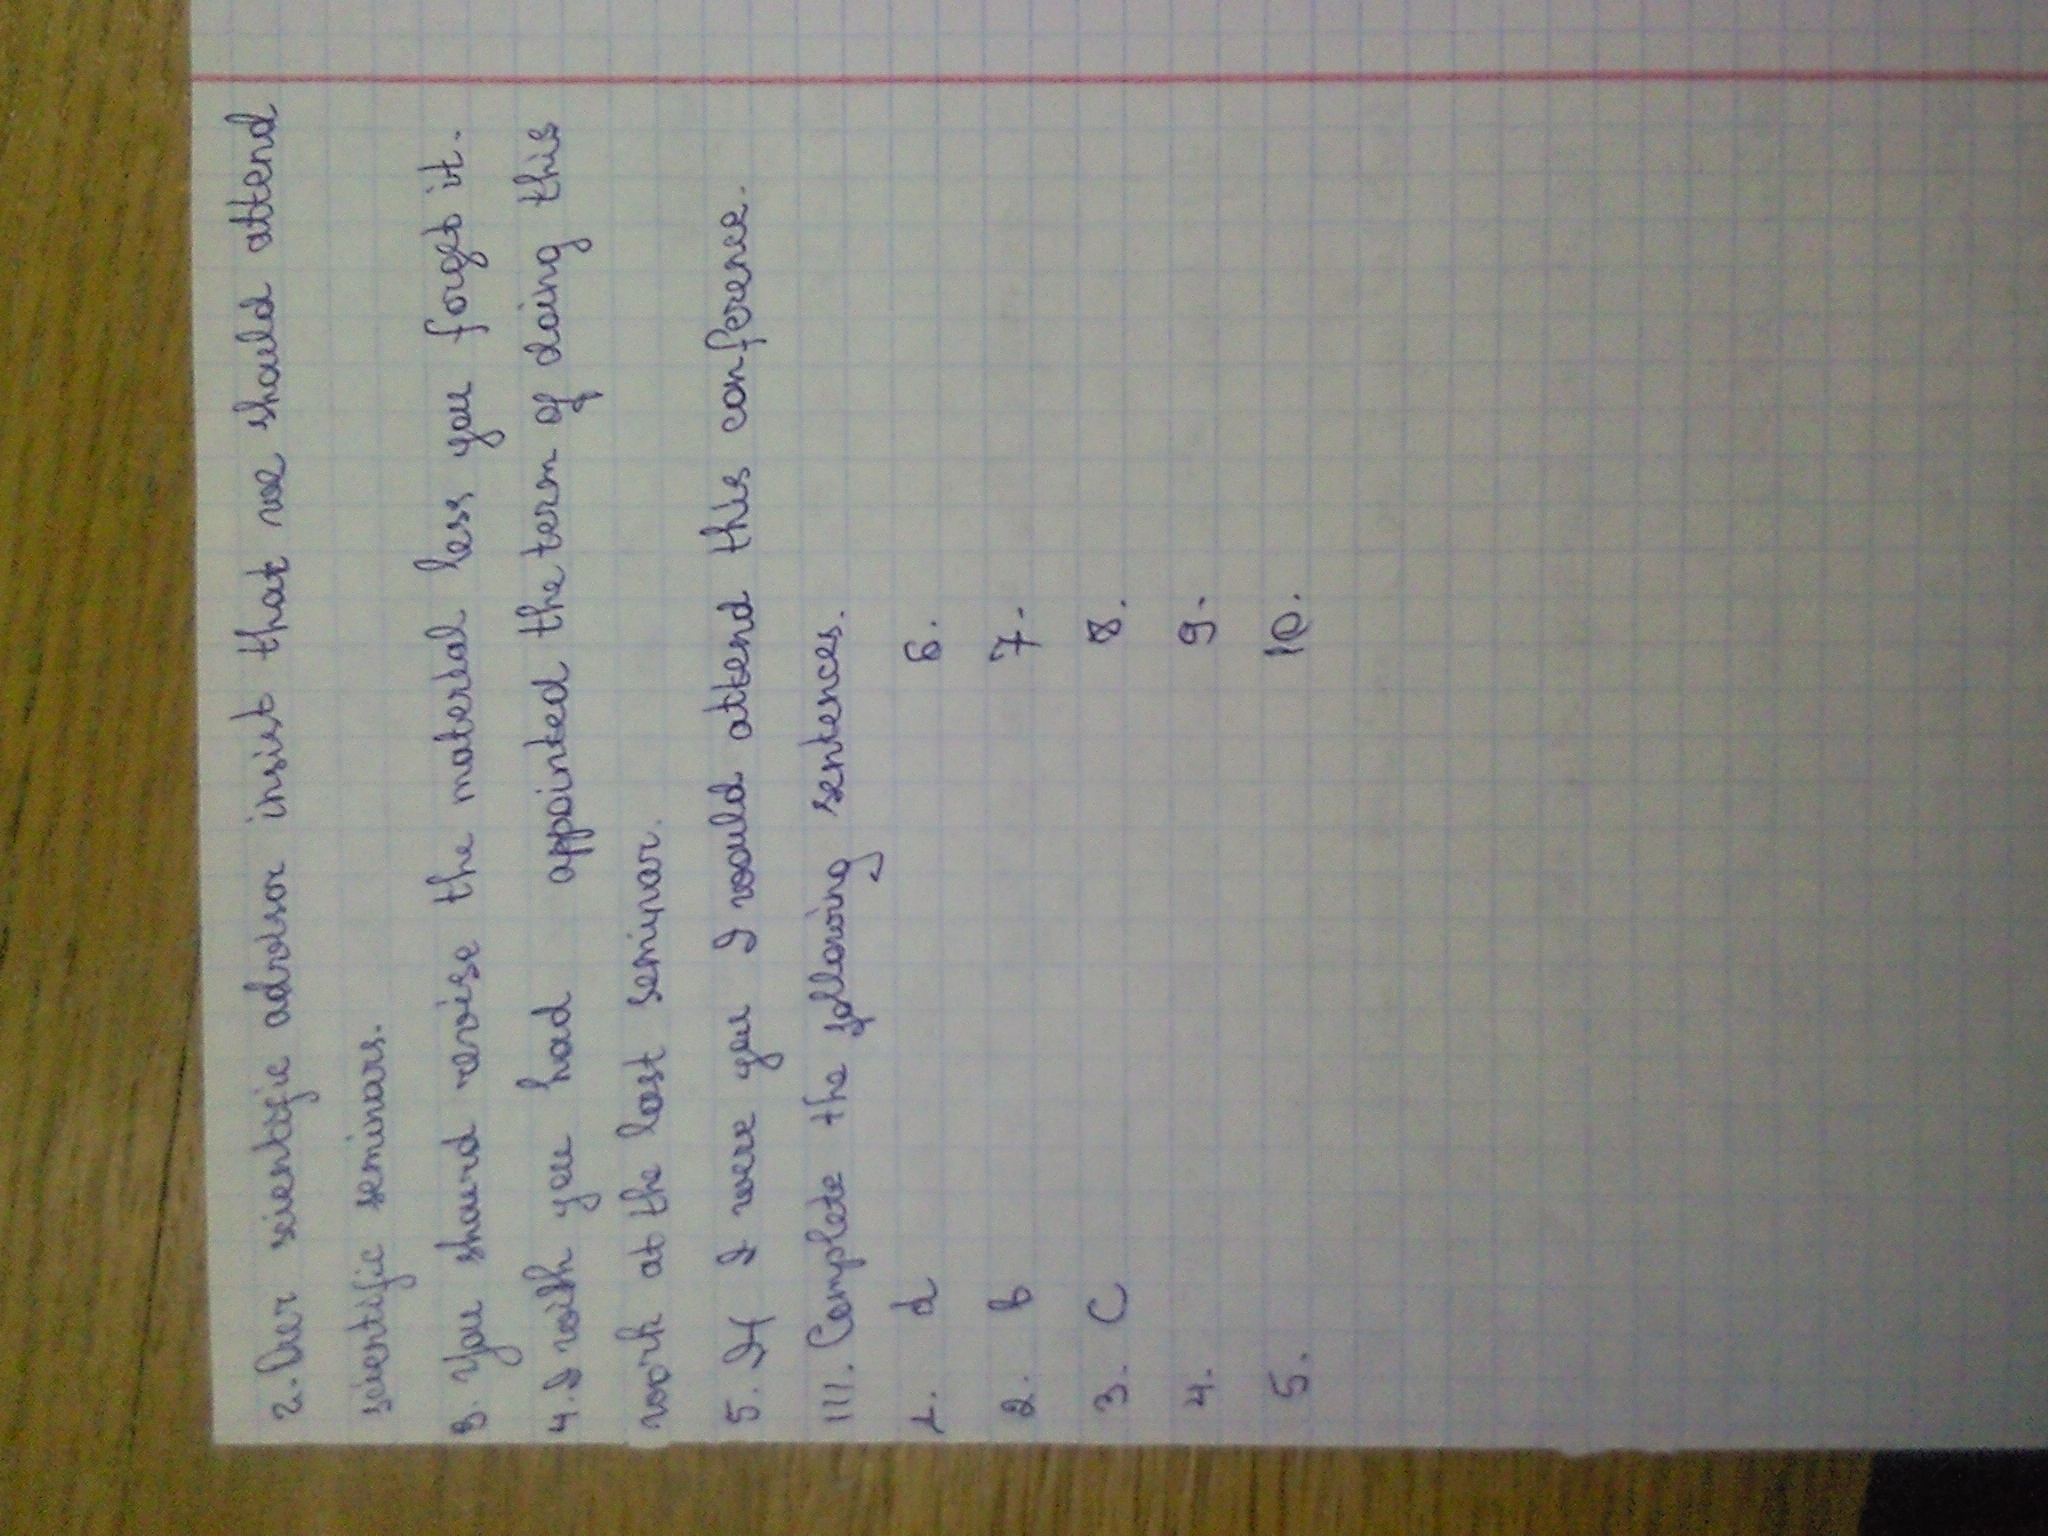 2. Our scientific advisor insist that we should attend
scientific seminars.
3. You should revise the material less you forget it.
4. I wish you had appointed the term of doing this
work at the last seminar.
5. If I were you I would attend this conference.
III. Complete the following sentences.
1. d 6.
2. b 7.
3. C 8.
4. 9.
5. 10.